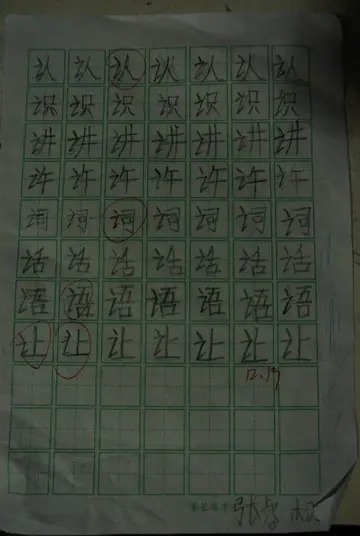 认认认认认认认
识识识识识识识
讲讲讲讲讲讲讲
许许许许许许许
词词词词词词词
话话话话话话话
语语语语语语语
让让让让让让让
12.19
家长签字